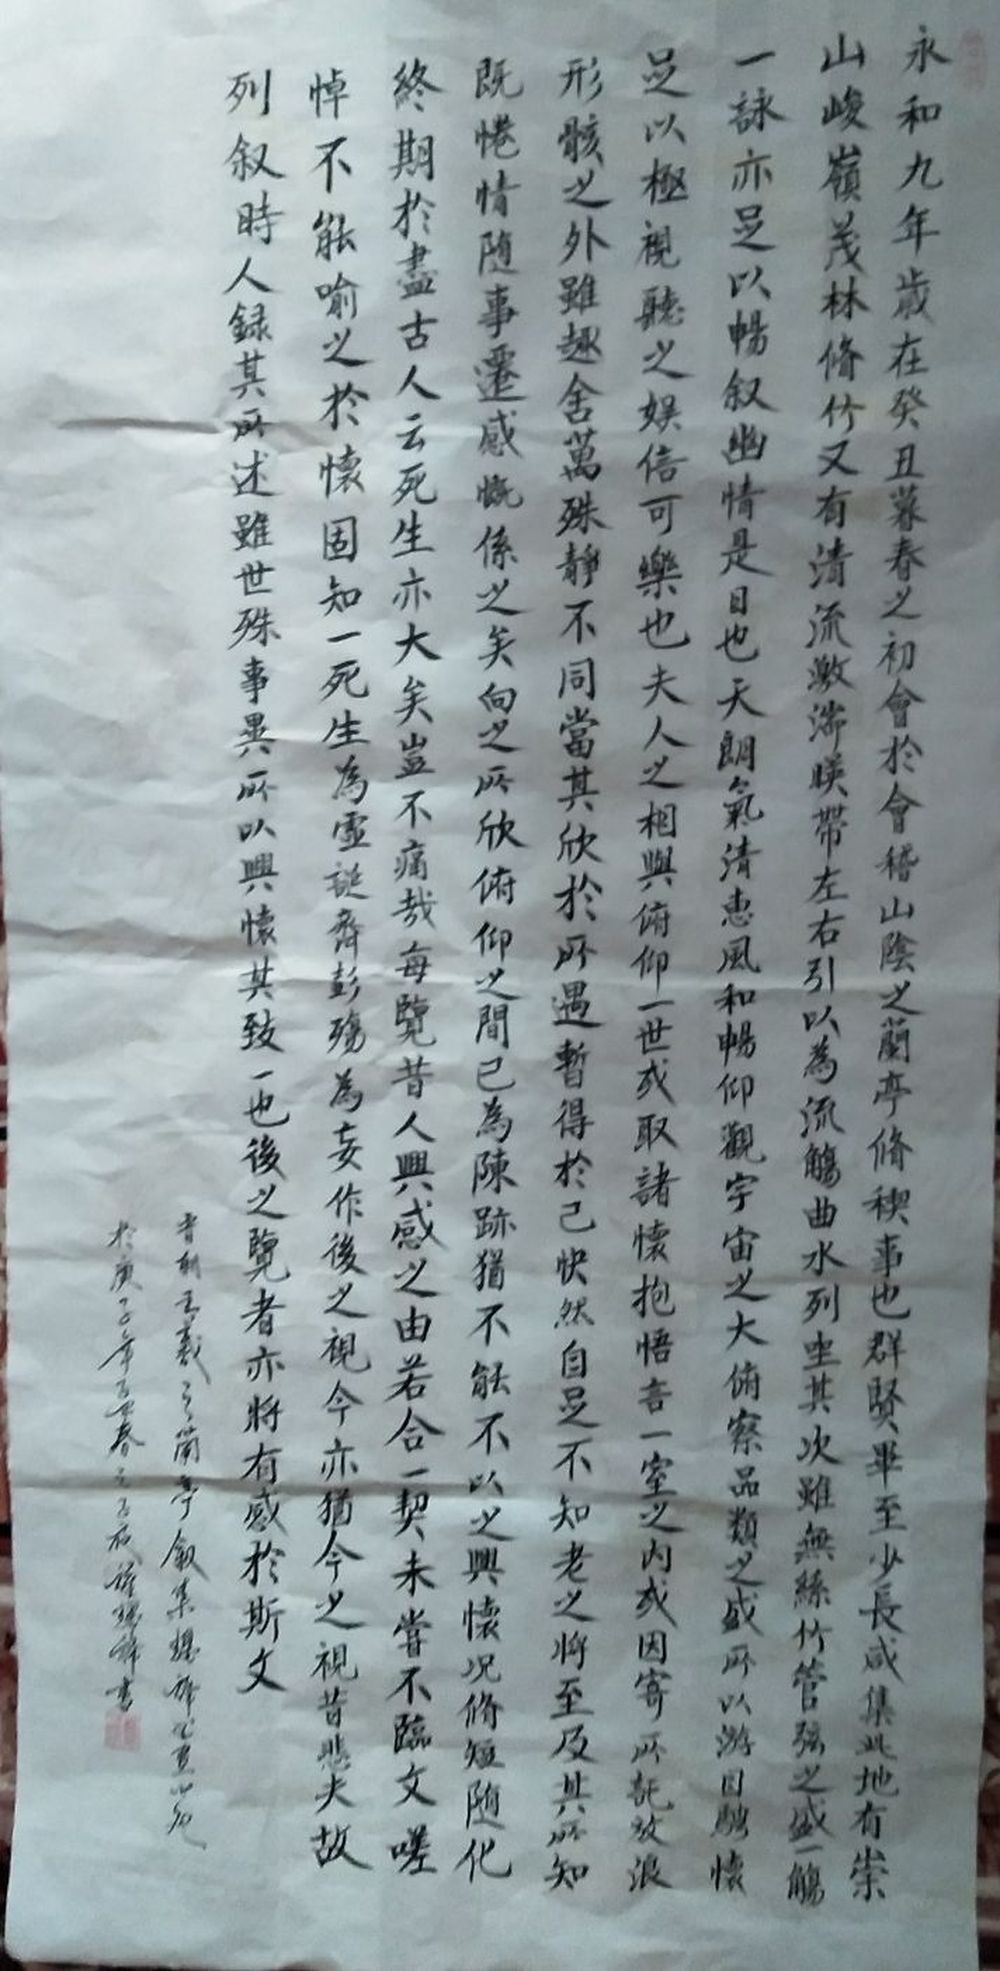 永和九年歲在癸丑暮春之初會於會稽山陰之蘭亭脩稧事也群賢畢至少長咸集此地有崇
山峻嶺茂林脩竹又有清流激湍暎帶左右引以為流觴曲水列坐其次雖無絲竹管弦之盛一觴
一詠亦足以暢叙幽情是日也天朗氣清惠風和暢仰觀宇宙之大俯察品類之盛所以游目騁懷
足以極視聽之娱信可樂也夫人之相與俯仰一世或取諸懷抱悟言一室之内或因寄所託放浪
形骸之外雖趣舍萬殊靜不同當其欣於所遇暫得於己快然自足不知老之將至及其所知
既惓情随事遷感慨係之矣向之所欣俯仰之間已為陳跡猶不能不以之興懷况脩短随化
終期於盡古人云死生亦大矣豈不痛哉每覽昔人興感之由若合一契未嘗不臨文嗟
悼不能喻之於懷固知一死生為虛誕齊彭殤為妄作後之視今亦猶今之視昔悲夫故
列叙時人録其所述雖世殊事異所以興懷其致一也後之覽者亦將有感於斯文
晉朝王羲之蘭亭叙集
於庚子年春書